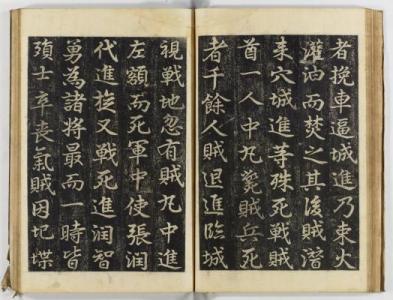 者挽車逼城進乃束火
灌油而焚之其後賊潛
来穴城進等殊死戰賊
首一人中丸斃賊兵死
者千餘人賊退進臨城
視戰地忽有賊丸中進
左額而死軍中使張潤
代進旋又戰死進潤智
勇為諸將最而一時皆
殞士卒喪氣賊因圮堞